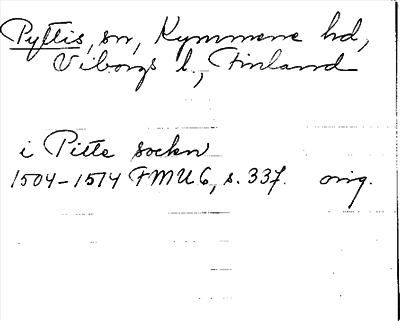 Pyttis, sn, Kymmene hd,
Viborgs l., Finland
i Pitte sockn
1504-1514 FMU 6, s. 337. orig.